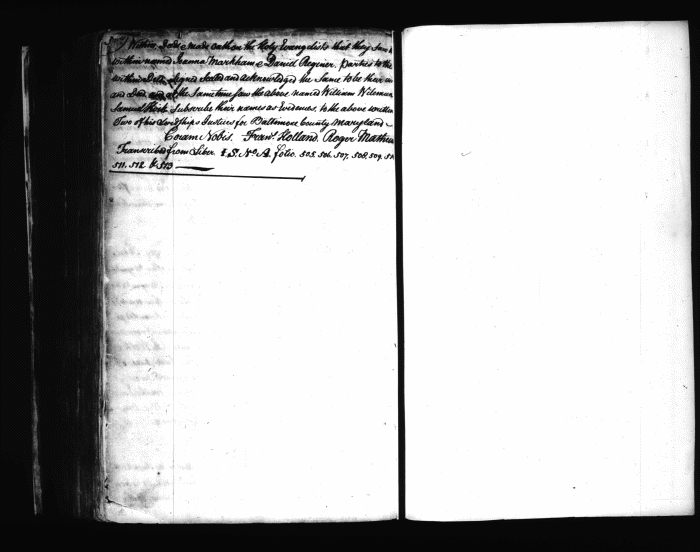 Within Deed made oath on the Holy Evangelists that they saw
within named Joanna Markham & Daniel Regner Parties to the
within Deed signed Sealed and acknowledged the Same to be their
and Deed and at the Sametime saw the above named William Wileman
Samuel Subscribe their names as Evidences. to the above written
Two of his Lordships Justices for Baltimore County Maryland
Coram Nobis. Frans. Holland. Roger Mathew
Transcribed from Liber I.S. No. A. folio. 505. 506. 507. 508. 509.
511. 512 & 513